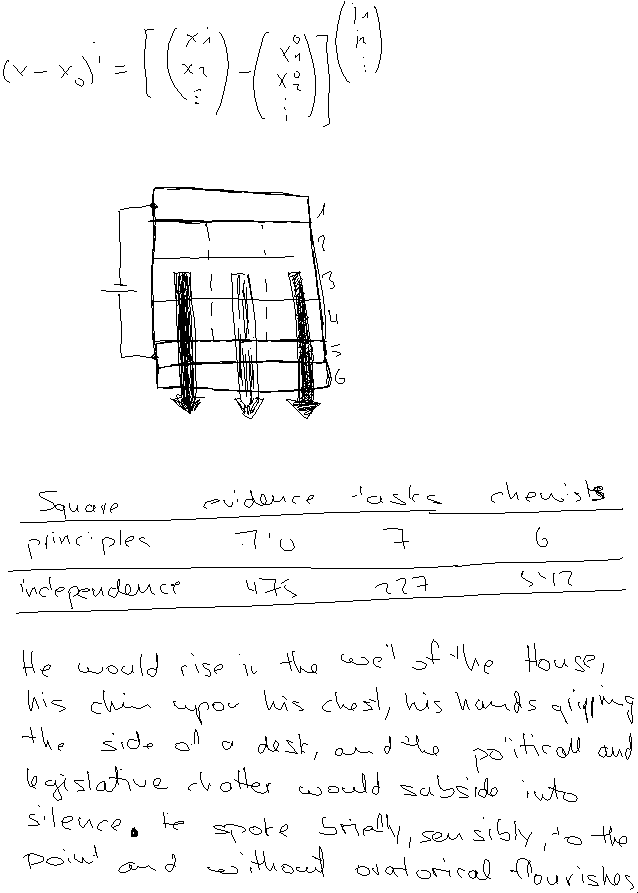 (x - x₀)ʲ = [(x₁ x₂ ⋮) - (x₁⁰ x₂⁰ ⋮)]^(j₁ j₂ ⋮)
1
2
3
4
5
6
Square evidence tasks chemists
principles 7 6
independence 475 227
He would rise in the well of the House,
his chin upon his chest, his hands gripping
the side of a desk, and the political and
legislative chatter would subside into
silence. He spoke briefly, sensibly, to the
point and without oratorical flourishes